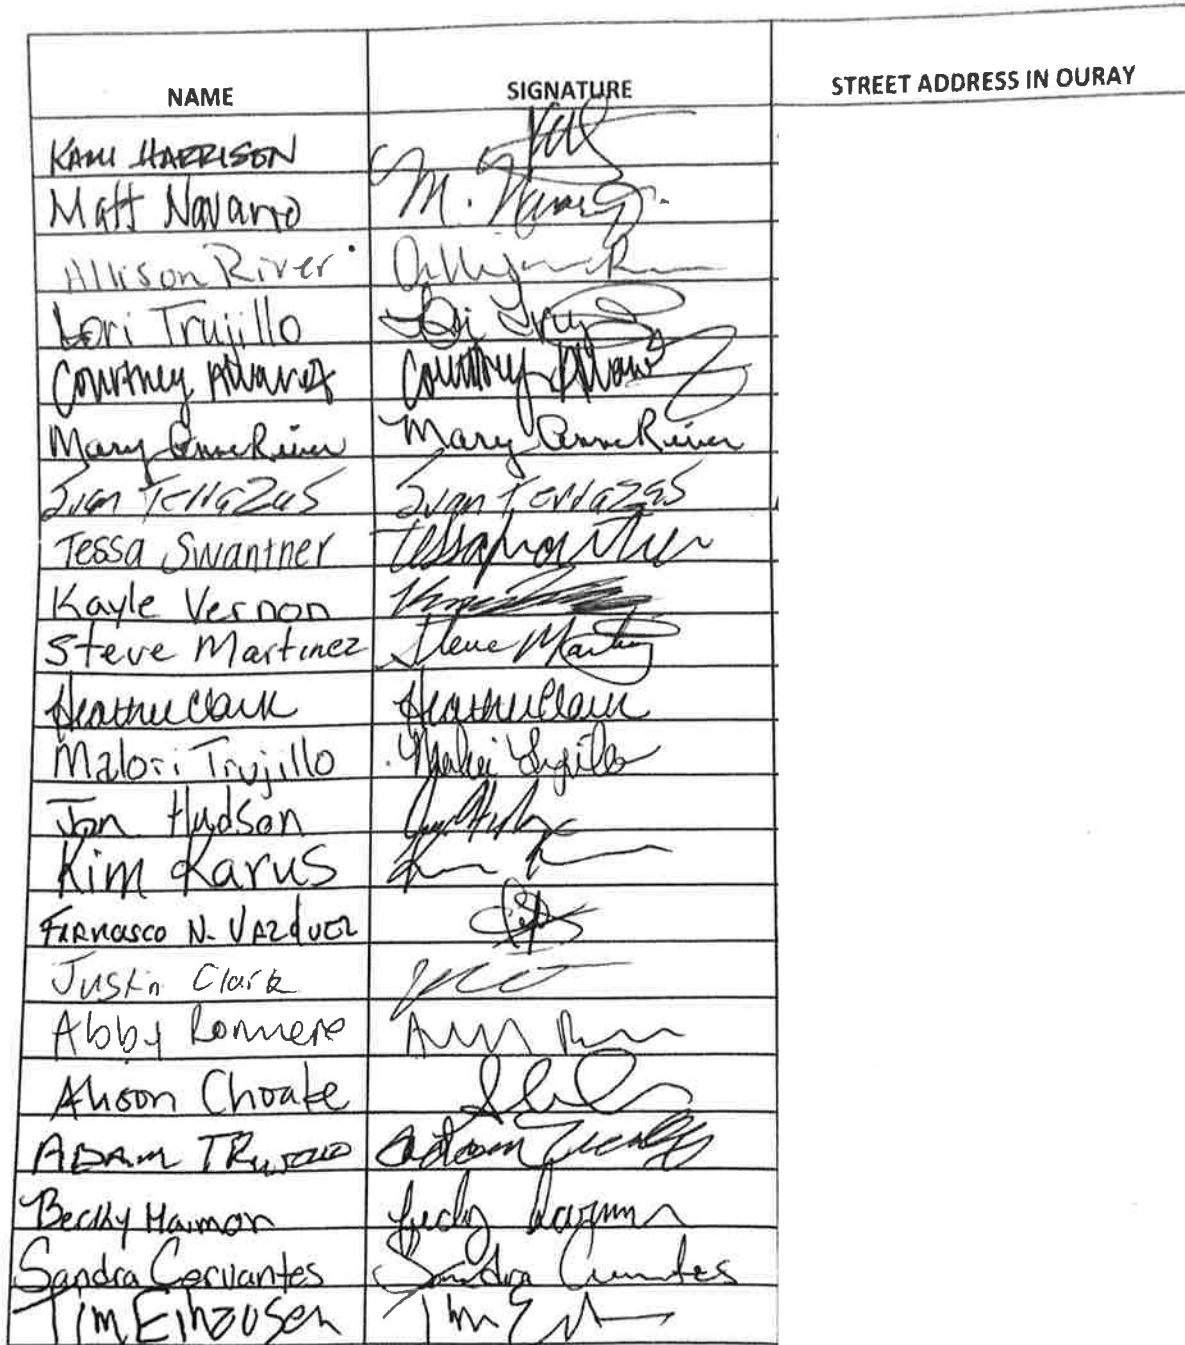 NAME SIGNATURE STREET ADDRESS IN OURAY
KAMI HARRISON
Matt Navarro M. Navarro
Allison River Allison R
Lori Trujillo Lori Truj
Courtney Alvarez Courtney Alvarez
Mary Anne River Mary Anne River
Ivan Terrazas Ivan Terrazas
Tessa Swantner Tessa Swantner
Kayle Vernon
Steve Martinez Steve Martinez
Heather Clark Heather Clark
Malori Trujillo Malori Trujillo
Jon Hudson
Kim Karus
N. VAZQUEZ
Justin Clark
Abby Romero
Alison Choate
ADAM TRUJILLO Adam
Becky Harmon Becky
Sandra Cervantes Sandra Cervantes
Tim Eihausen Tim